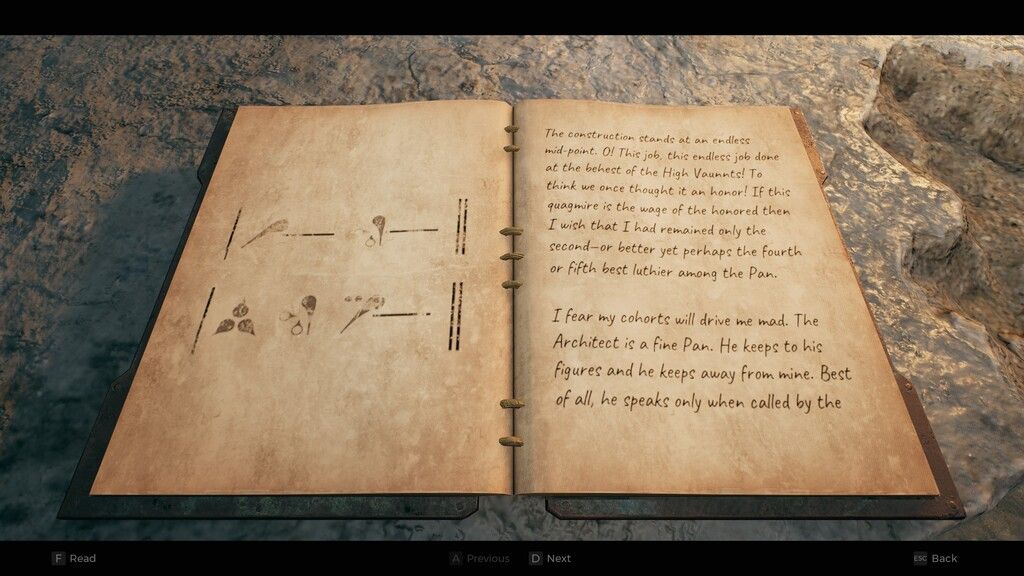 The construction stands at an endless
mid-point. O! This job, this endless job done
at the behest of the High Vaunnts! To
think we once thought it an honor! If this
quagmire is the wage of the honored then
I wish that I had remained only the
second—or better yet perhaps the fourth
or fifth best luthier among the Pan.
I fear my cohorts will drive me mad. The
Architect is a fine Pan. He keeps to his
figures and he keeps away from mine. Best
of all, he speaks only when called by the
F Read
A Previous
D Next
ESC Back